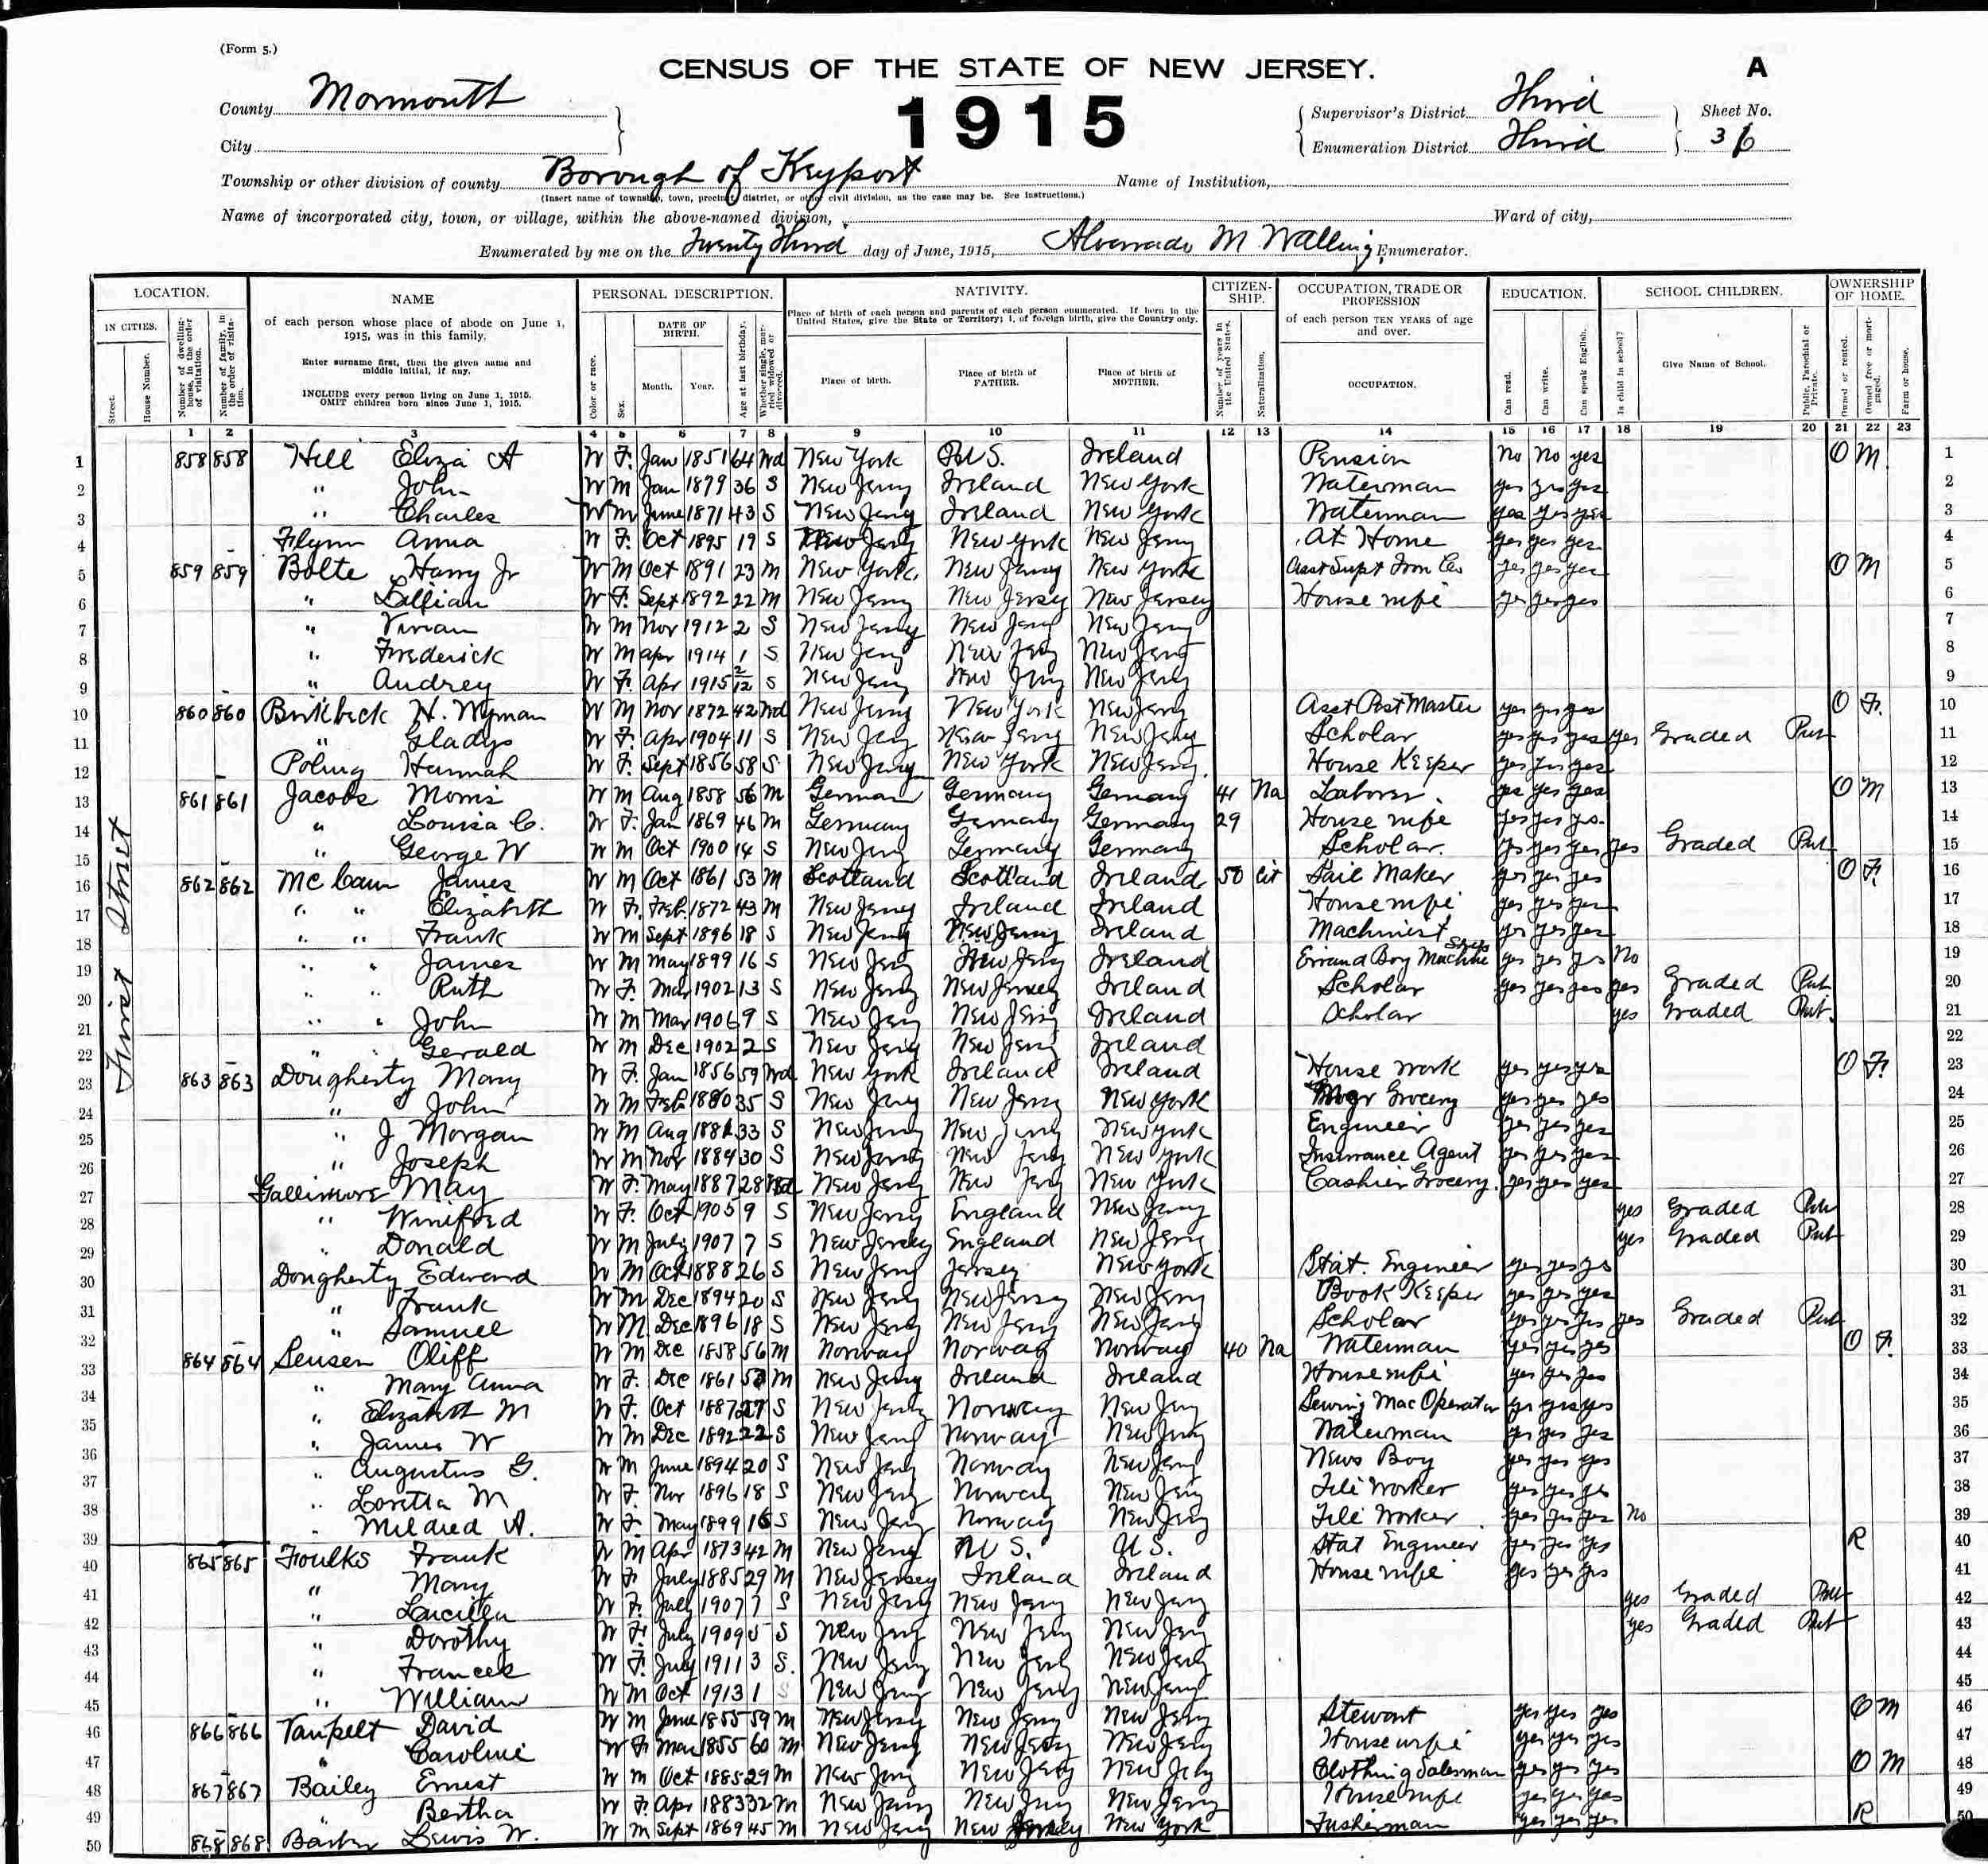 (Form 5.)
CENSUS OF THE STATE OF NEW JERSEY.
A
1915
County Monmouth
City
Supervisor's District Third
Enumeration District Third
Sheet No.
36
Township or other division of county Borough of Keyport Name of Institution,
(Insert name of township, town, precinct, district, or other civil division, as the case may be. See instructions.)
Name of incorporated city, town, or village, within the above-named division, Ward of city,
Enumerated by me on the Twenty Third day of June, 1915, Alvarado M Walling, Enumerator.
LOCATION. NAME PERSONAL DESCRIPTION. NATIVITY. CITIZENSHIP. OCCUPATION, TRADE OR PROFESSION EDUCATION. SCHOOL CHILDREN. OWNERSHIP OF HOME.
IN CITIES.
Street.
House Number.
Number of dwelling-house, in the order of visitation.
Number of family, in the order of visitation.
of each person whose place of abode on June 1, 1915, was in this family.
Enter surname first, then the given name and middle initial, if any.
INCLUDE every person living on June 1, 1915.
OMIT children born since June 1, 1915.
Color or race.
Sex.
DATE OF BIRTH.
Month. Year.
Age at last birthday.
Whether single, married, widowed or divorced.
Place of birth of each person and parents of each person enumerated. If born in the United States, give the State or Territory; i, of foreign birth, give the Country only.
Place of birth.
Place of birth of FATHER.
Place of birth of MOTHER.
Number of years in the United States.
Naturalization.
of each person TEN YEARS of age and over.
OCCUPATION.
Can read.
Can write.
Can speak English.
Is child in school?
Give Name of School.
Public, Parochial or Private.
Owned or rented.
Owned free or mortgaged.
Farm or house.
1 2 3 4 5 6 7 8 9 10 11 12 13 14 15 16 17 18 19 20 21 22 23
First Street
1 858 858 Hill Eliza A W F. Jan 1851 64 Wd New York U.S. Ireland Pension No No yes O M 1
2 " John W M Jan 1879 36 S New Jersey Ireland New York Waterman yes yes yes 2
3 " Charles W M June 1871 43 S New Jersey Ireland New York Waterman yes yes yes 3
4 Flynn Anna W F. Oct 1895 19 S New Jersey New York New Jersey At Home yes yes yes 4
5 859 859 Bolte Harry Jr W M Oct 1891 23 M New York New Jersey New York Asst Supt Iron Co yes yes yes O M 5
6 " Lillian W F. Sept 1892 22 M New Jersey New Jersey New Jersey House wife yes yes yes 6
7 " Vivian W M Nov 1912 2 S New Jersey New Jersey New Jersey 7
8 " Frederick W M Apr 1914 1 S New Jersey New Jersey New Jersey 8
9 " Audrey W F. Apr 1915 2/12 S New Jersey New Jersey New Jersey 9
10 860 860 Birkbeck H. Wyman W M Nov 1872 42 Wd New Jersey New York New Jersey Asst Post Master yes yes yes O F. 10
11 " Gladys W F. Apr 1904 11 S New Jersey New Jersey New Jersey Scholar yes yes yes yes Graded Pub 11
12 Poling Hannah W F. Sept 1856 58 S New Jersey New York New Jersey House Keeper yes yes yes 12
13 861 861 Jacobs Morris W M Aug 1858 56 M German Germany Germany 41 Na Laborer yes yes yes O M 13
14 " Louisa C. W F. Jan 1869 46 M Germany Germany Germany 29 House wife yes yes yes 14
15 " George W W M Oct 1900 14 S New Jersey Germany Germany Scholar. yes yes yes yes Graded Pub 15
16 862 862 McCann James W M Oct 1861 53 M Scotland Scotland Ireland 50 Cit Sail Maker yes yes yes O F. 16
17 " " Elizabeth W F. Feb. 1872 43 M New Jersey Ireland Ireland House wife yes yes yes 17
18 " " Frank W M Sept 1896 18 S New Jersey New Jersey Ireland Machinist yes yes yes 18
19 " " James W M May 1899 16 S New Jersey New Jersey Ireland Errand Boy Machine Shop yes yes yes No 19
20 " " Ruth W F. Mar 1902 13 S New Jersey New Jersey Ireland Scholar yes yes yes yes Graded Pub 20
21 " " John W M Mar 1906 9 S New Jersey New Jersey Ireland Scholar yes Graded Pub. 21
22 " " Gerald W M Dec 1902 2 S New Jersey New Jersey Ireland 22
23 863 863 Dougherty Mary W F. Jan 1856 59 Wd New York Ireland Ireland House work yes yes yes O F. 23
24 " John W M Feb. 1880 35 S New Jersey New Jersey New York Mngr Grocery yes yes yes 24
25 " J Morgan W M Aug 1881 33 S New Jersey New Jersey New York Engineer yes yes yes 25
26 " Joseph W M Nov 1884 30 S New Jersey New Jersey New York Insurance Agent yes yes yes 26
27 Gallimore May W F. May 1887 28 Wd New Jersey New Jersey New York Cashier Grocery. yes yes yes 27
28 " Winifred W F. Oct 1905 9 S New Jersey England New Jersey yes Graded Pub 28
29 " Donald W M July 1907 7 S New Jersey England New Jersey yes Graded Pub 29
30 Dougherty Edward W M Oct 1888 26 S New Jersey Jersey New York Stat. Engineer yes yes yes 30
31 " Frank W M Dec 1894 20 S New Jersey New Jersey New Jersey Book Keeper yes yes yes 31
32 " Samuel W M. Dec 1896 18 S New Jersey New Jersey New Jersey Scholar yes yes yes yes Graded Pub 32
33 864 864 Sensen Oliff W M Dec 1858 56 M Norway Norway Norway 40 Na Waterman yes yes yes O F. 33
34 " Mary Anna W F. Dec 1861 53 M New Jersey Ireland Ireland House wife yes yes yes 34
35 " Elizabeth M W F. Oct 1887 27 S New Jersey Norway New Jersey Sewing Mac Operator yes yes yes 35
36 " James W W M Dec 1892 22 S New Jersey Norway New Jersey Waterman yes yes yes 36
37 " Augustus G. W M June 1894 20 S New Jersey Norway New Jersey News Boy yes yes yes 37
38 " Loretta M W F. Nov 1896 18 S New Jersey Norway New Jersey Tile Worker yes yes yes 38
39 " Mildred A. W F. May 1899 16 S New Jersey Norway New Jersey Tile Worker yes yes yes No 39
40 865 865 Foulks Frank W M Apr 1873 42 M New Jersey U S. U S. Stat Engineer yes yes yes R 40
41 " Mary W F. July 1885 29 M New Jersey Ireland Ireland House wife yes yes yes 41
42 " Lucilla W F. July 1907 7 S New Jersey New Jersey New Jersey yes Graded Pub 42
43 " Dorothy W F. July 1909 5 S New Jersey New Jersey New Jersey yes Graded Pub 43
44 " Frances W F. July 1911 3 S. New Jersey New Jersey New Jersey 44
45 " William W M Oct 1913 1 S New Jersey New Jersey New Jersey 45
46 866 866 Vanpelt David W M June 1855 59 M New Jersey New Jersey New Jersey Stewart yes yes yes O M 46
47 " Caroline W F. Mar 1855 60 M New Jersey New Jersey New Jersey House wife yes yes yes 47
48 867 867 Bailey Ernest W M Oct 1885 29 M New Jersey New Jersey New Jersey Clothing Salesman yes yes yes O M 48
49 " Bertha W F. Apr 1883 32 M New Jersey New Jersey New Jersey House wife yes yes yes 49
50 868 868 Lewis W. W M Sept 1869 45 M New Jersey New Jersey New York Fisherman yes yes yes R 50